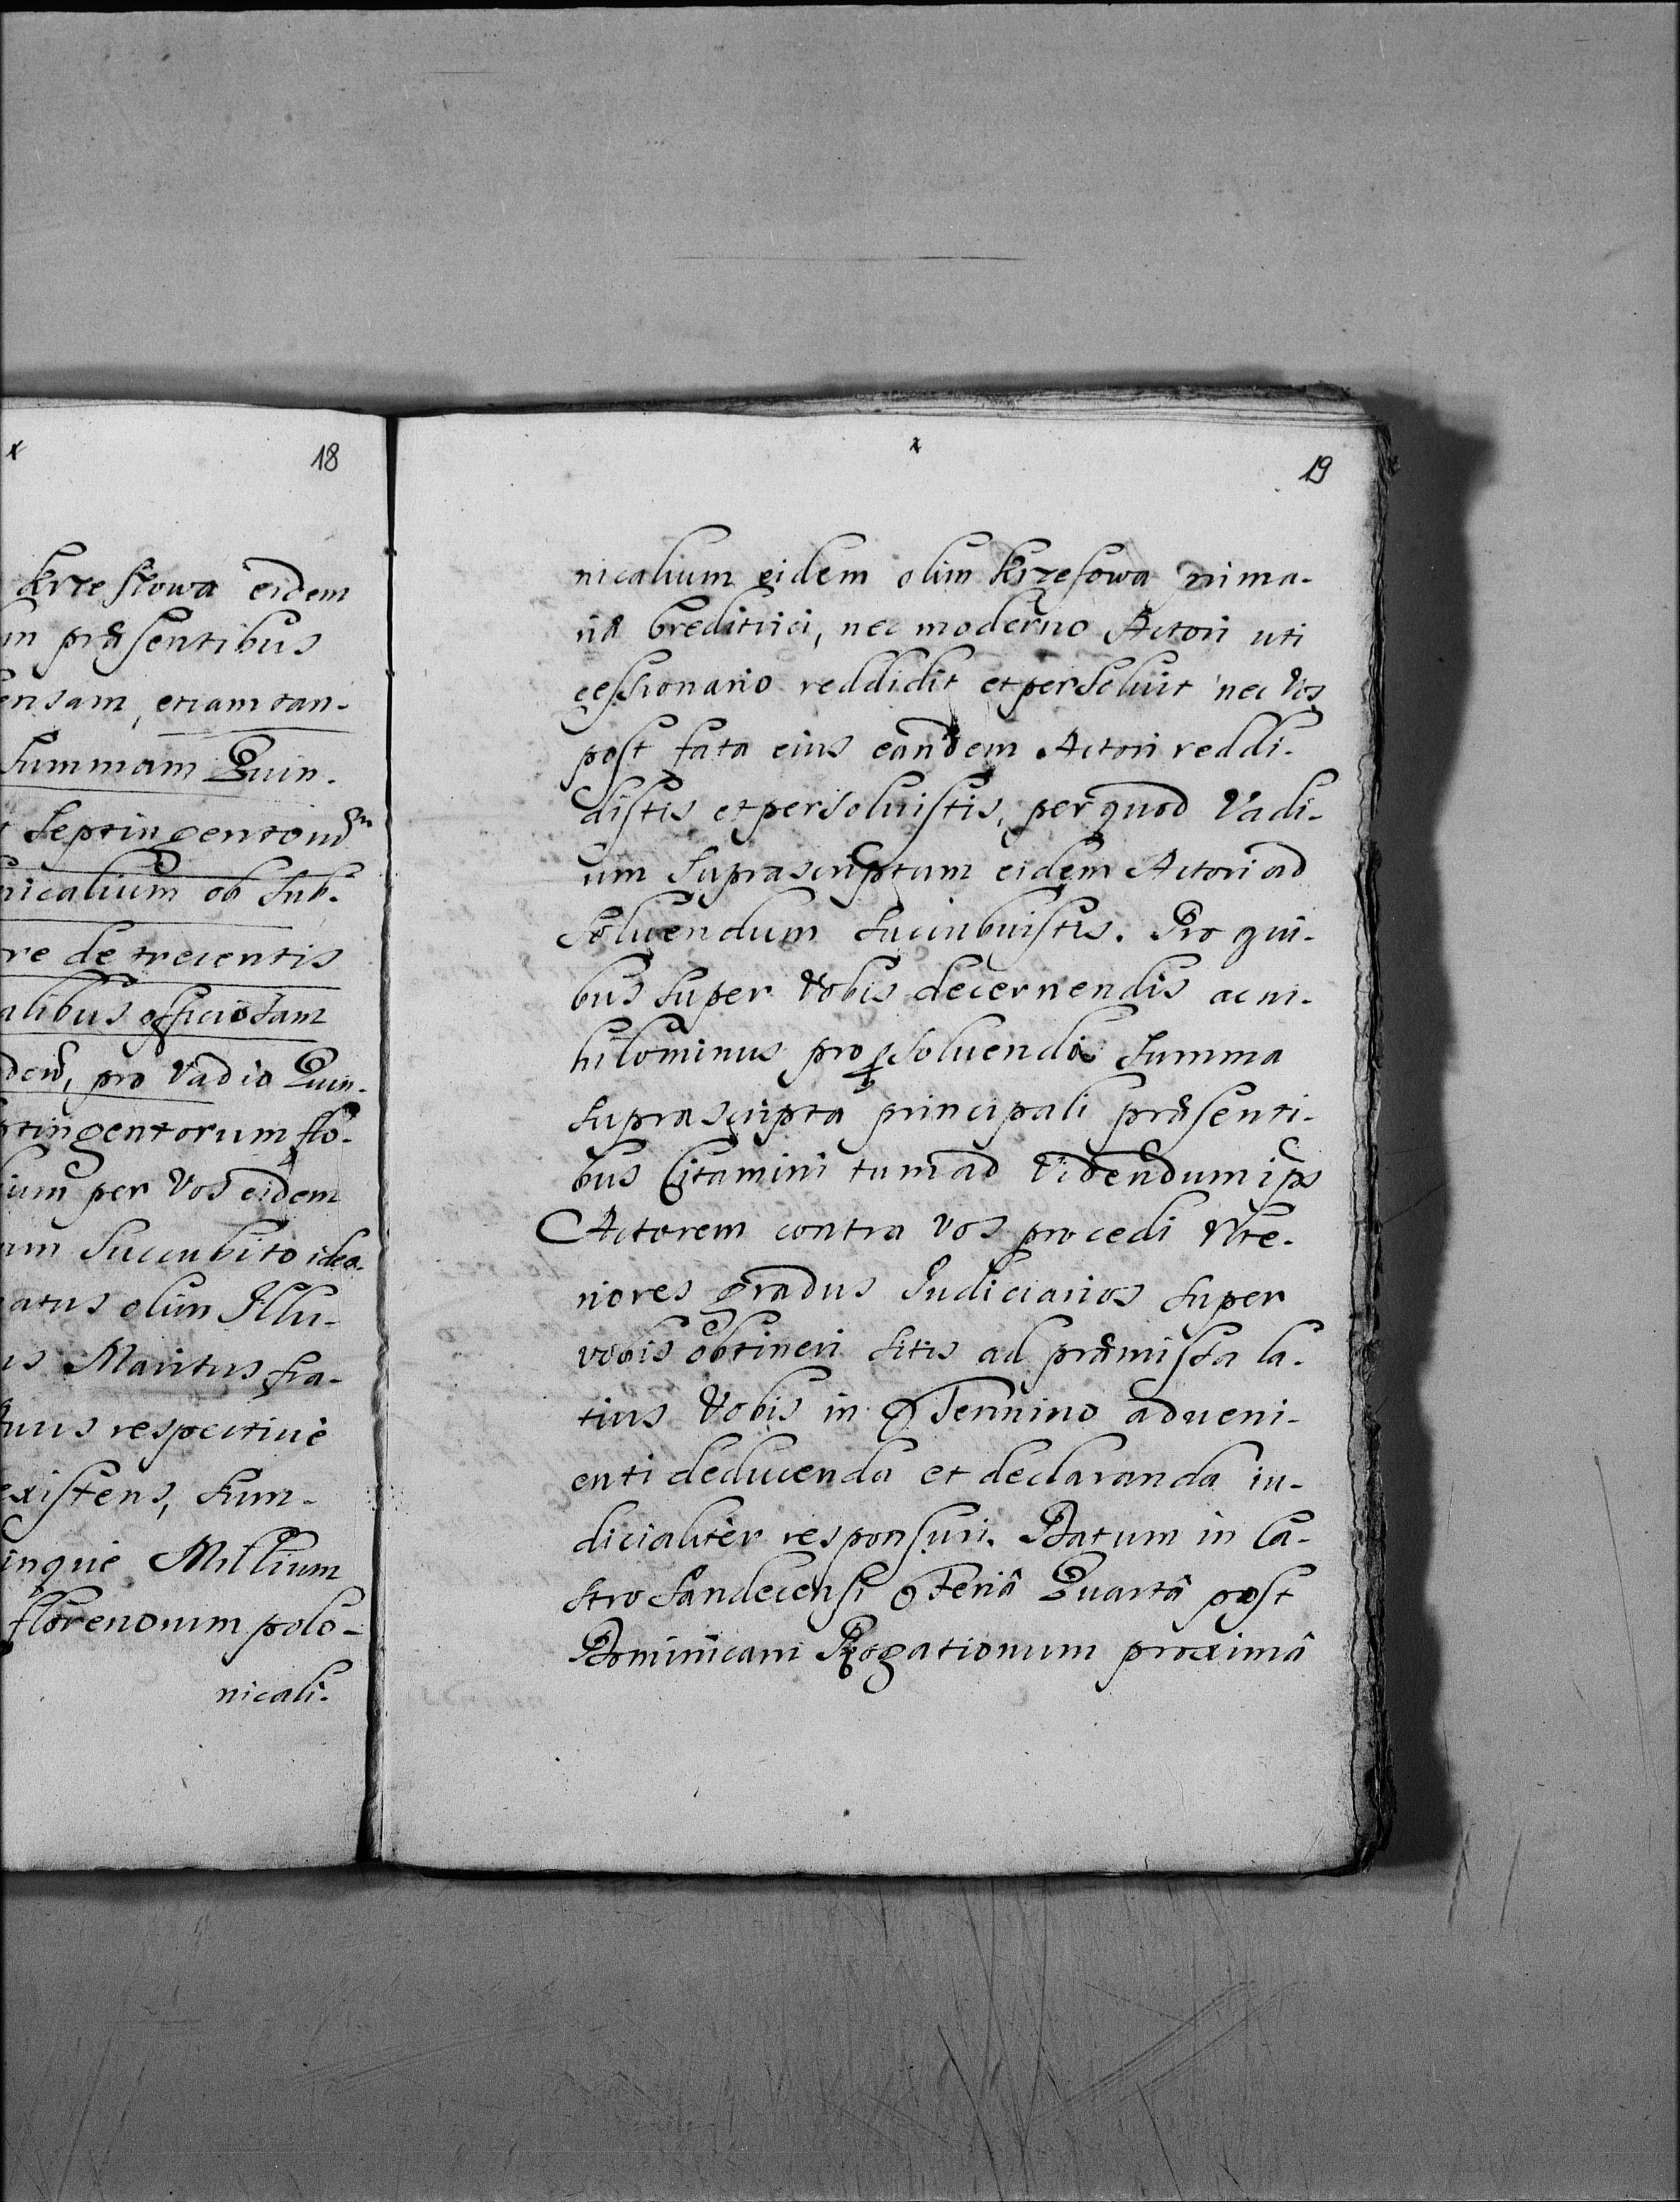 x 18
Krzesłowa eidem
m præsentibus
ensam, etiam tan-
Summam Quin-
t Septingentorum
nicalium ob sub-
re de trecentis
alibus officiosam
dem, pro Vadio Quin-
ptingentorum flo-
lium per Vos eidem
um Succubito ideo
natus olim Illu-
is Maritus fra-
tuus respective
existens, Sum-
inque Millium
florenorum polo-
nicali.
x
19
nicalium eidem olim Krzesowa prima-
riæ Creditrici, nec moderno Actori uti
cessionario reddidit et persolvit nec Vos
post fata eius eandem Actori reddi-
distis et persolvistis, per quod Vadi-
um Suprascriptum eidem Actori ad
Solvendum Succubuistis. Pro qui-
bus super Vobis decernendis ac ni-
hilominus pro solvenda Summa
suprascripta principali præsenti-
bus Citamini tum ad Videndum ips
Actorem contra vos procedi Vlte-
riores gradus Judiciarios super
vobis obtineri sitis ad præmissa la-
tius Vobis in Termino adveni-
enti deducenda et declaranda iu-
dicialiter responsuri. Datum in Ca-
stro Sandecensi Feriâ Quartâ post
Dominicam Rogationum proximâ